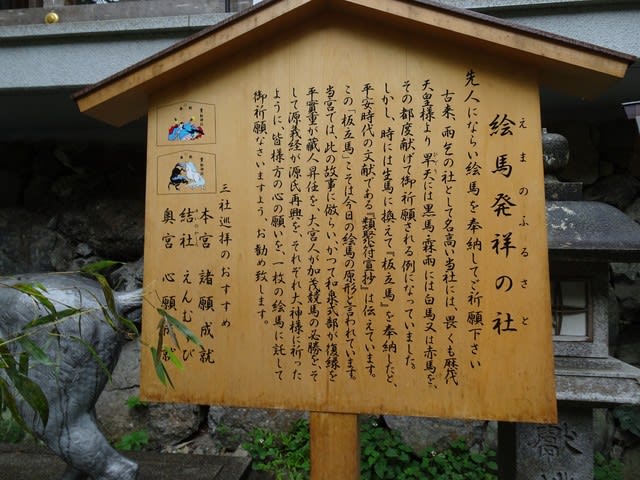 えまのふるさと
絵馬発祥の社
先人にならい絵馬を奉納してご祈願下さい
古来、雨乞の社として名高い当社には、畏くも歴代
天皇様より旱天には黒馬・霖雨には白馬又は赤馬を、
その都度献げて御祈願される例になっていました。
しかし、時には生馬に換えて『板立馬』を奉納したと、
平安時代の文献である『類聚符宣抄』は伝えています。
この「板立馬」こそは今日の絵馬の原形と言われています。
当宮では、此の故事に倣らい、かつて和泉式部が復縁を
平實重が蔵人昇任を、大宮人が加茂競馬の必勝を、そ
して源義経が源氏再興を、それぞれ大神様に祈った
ように、皆様方の心の願いを、一枚の絵馬に託して
御祈願なさいますよう、お勧め致します。
三社巡拝のおすすめ
本宮 諸願成就
結社 えんむび
奥宮 心願成就